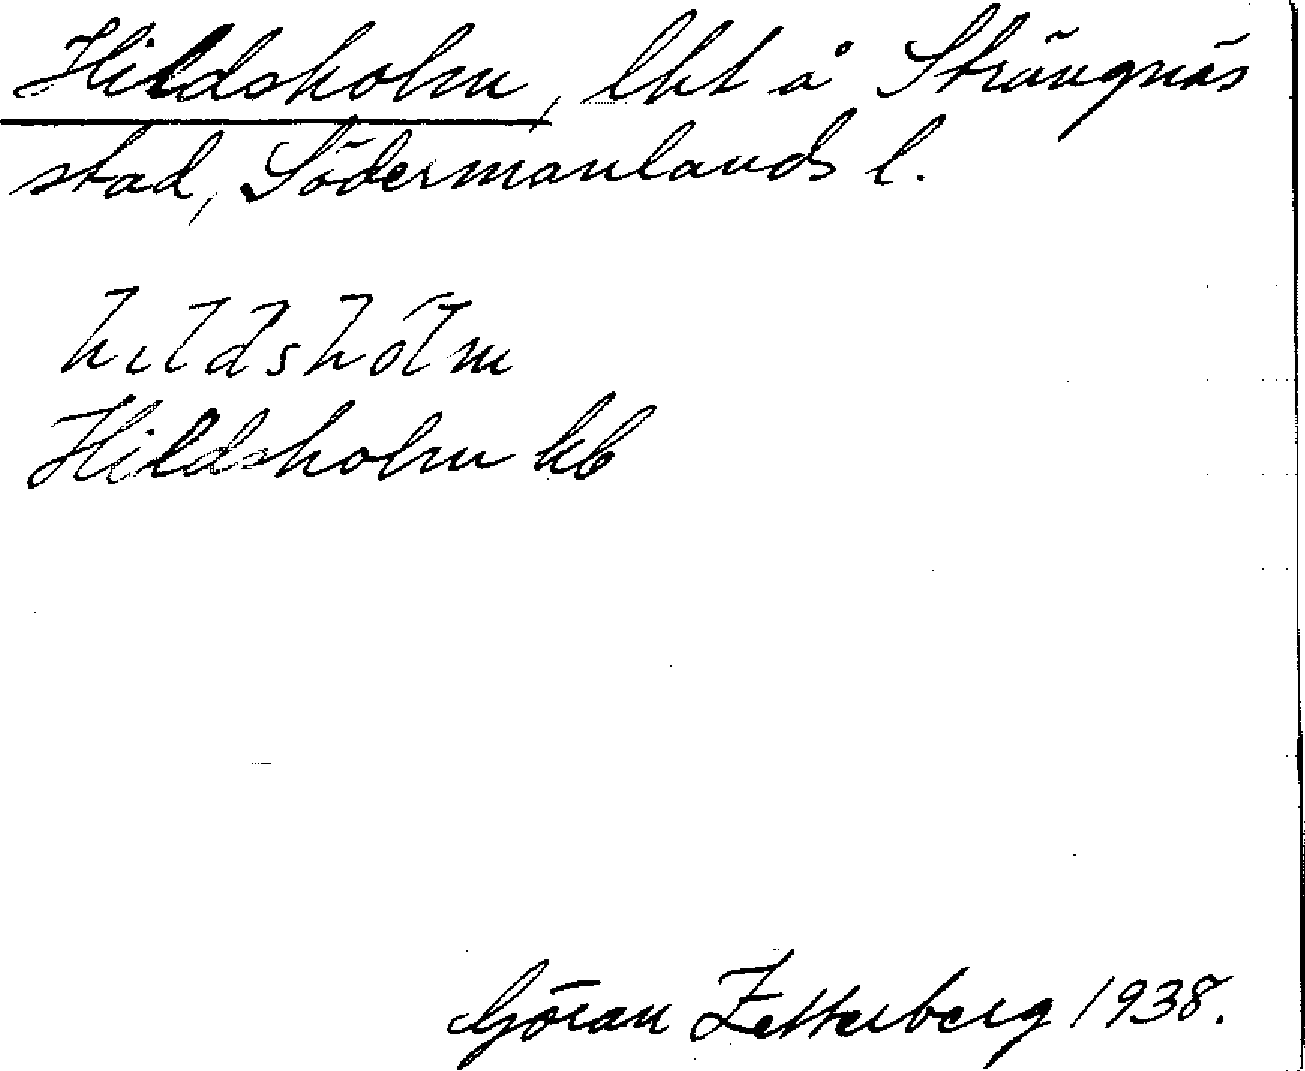 Hildsholm, lht å Strängnäs
stad, Södermanlands l.
hildshólm
Hildsholm kb
Göran Zetterberg 1938.